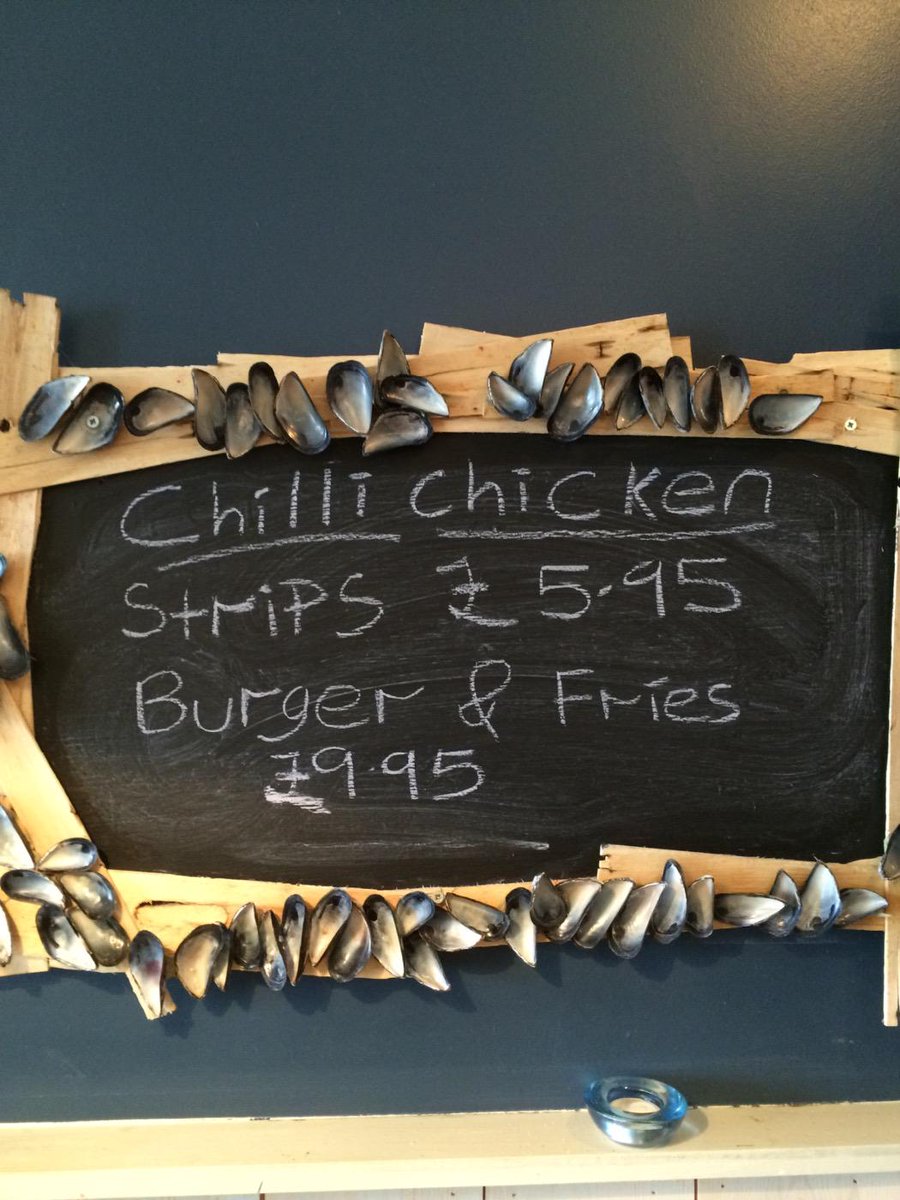 Chilli chicken
Strips £ 5.95
Burger & Fries
£9.95